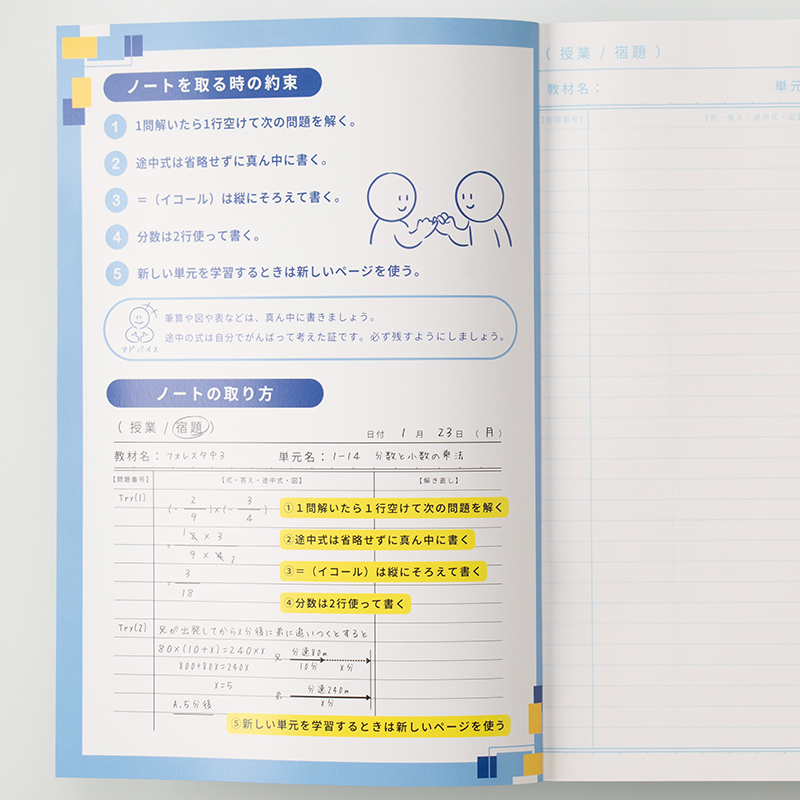 ノートを取る時の約束
1 1問解いたら1行空けて次の問題を解く。
2 途中式は省略せずに真ん中に書く。
3 =(イコール)は縦にそろえて書く。
4 分数は2行使って書く。
5 新しい単元を学習するときは新しいページを使う。
アドバイス
筆算や図や表などは、真ん中に書きましょう。
途中の式は自分でがんばって考えた証です。必ず残すようにしましょう。
ノートの取り方
(授業/宿題)
日付 1月23日(月)
教材名:フォレスタ中3 単元名:1-14 分数と小数の乗法
【問題番号】 【式・答え・途中式・図】 【解き直し】
Try(1)
(-2/9)×(-3/4)
①1問解いたら1行空けて次の問題を解く
= 1 2 × 3
9 × 4 2
②途中式は省略せずに真ん中に書く
= 3/18
③=(イコール)は縦にそろえて書く
④分数は2行使って書く
Try(2) 兄が出発してからx分後に弟に追いつくとすると
80×(10+x)=240×x 兄 分速80m
800+80x=240x 10分 x分
x=5 弟 分速240m
x分
A.5分後
⑤新しい単元を学習するときは新しいページを使う
(授業/宿題)
教材名: 単元
【問題番号】 【式・答え・途中式・図】